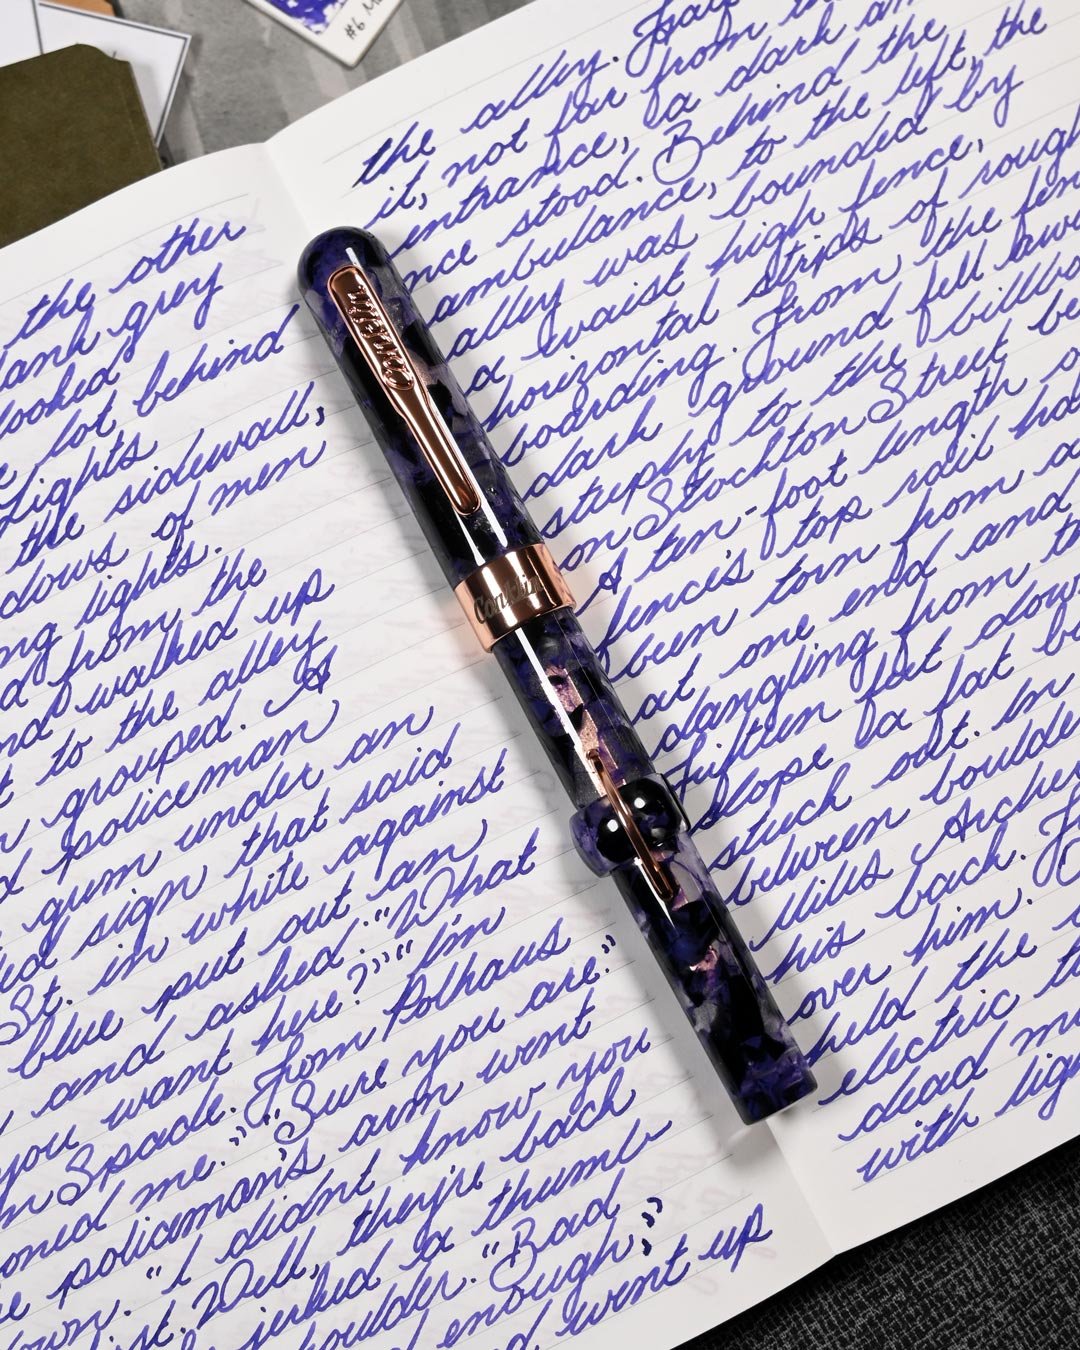 #6 M
the other
lank grey
looked
lot behind
Lights
the sidewall,
dows of men
ng lights.
d from the
nd walked up
t to the alley
n grouped. A
d policeman
gum under an
ed sign that said
St. in white against
blue put out an
and asked: "What
you want here?" "I'm
m Spade. Tom Polhaus
oned me." "Sure you are."
e policeman's arm went
own. "I didn't know you
ist. Well, they're back
jerked a thumb
houlder. "Bad
enough,"
d went up
Conklin
Conklin
the alley. Half
it, not far from
entrance, a dark am
nce stood. Behind the
ambulance, to the left, the
alley was bounded by
a waist high fence,
horizontal strips of rough
boarding. From the fen
dark ground fell away
steeply to the billbo
on Stockton Street be
A ten-foot length o
fence's top rail had
been torn from a
at one end and
dangling from
Fifteen feet down
slope a flat bo
stuck out. In
between boulde
Miles Archer
his back.
over him.
held the
electric
dead m
with lig